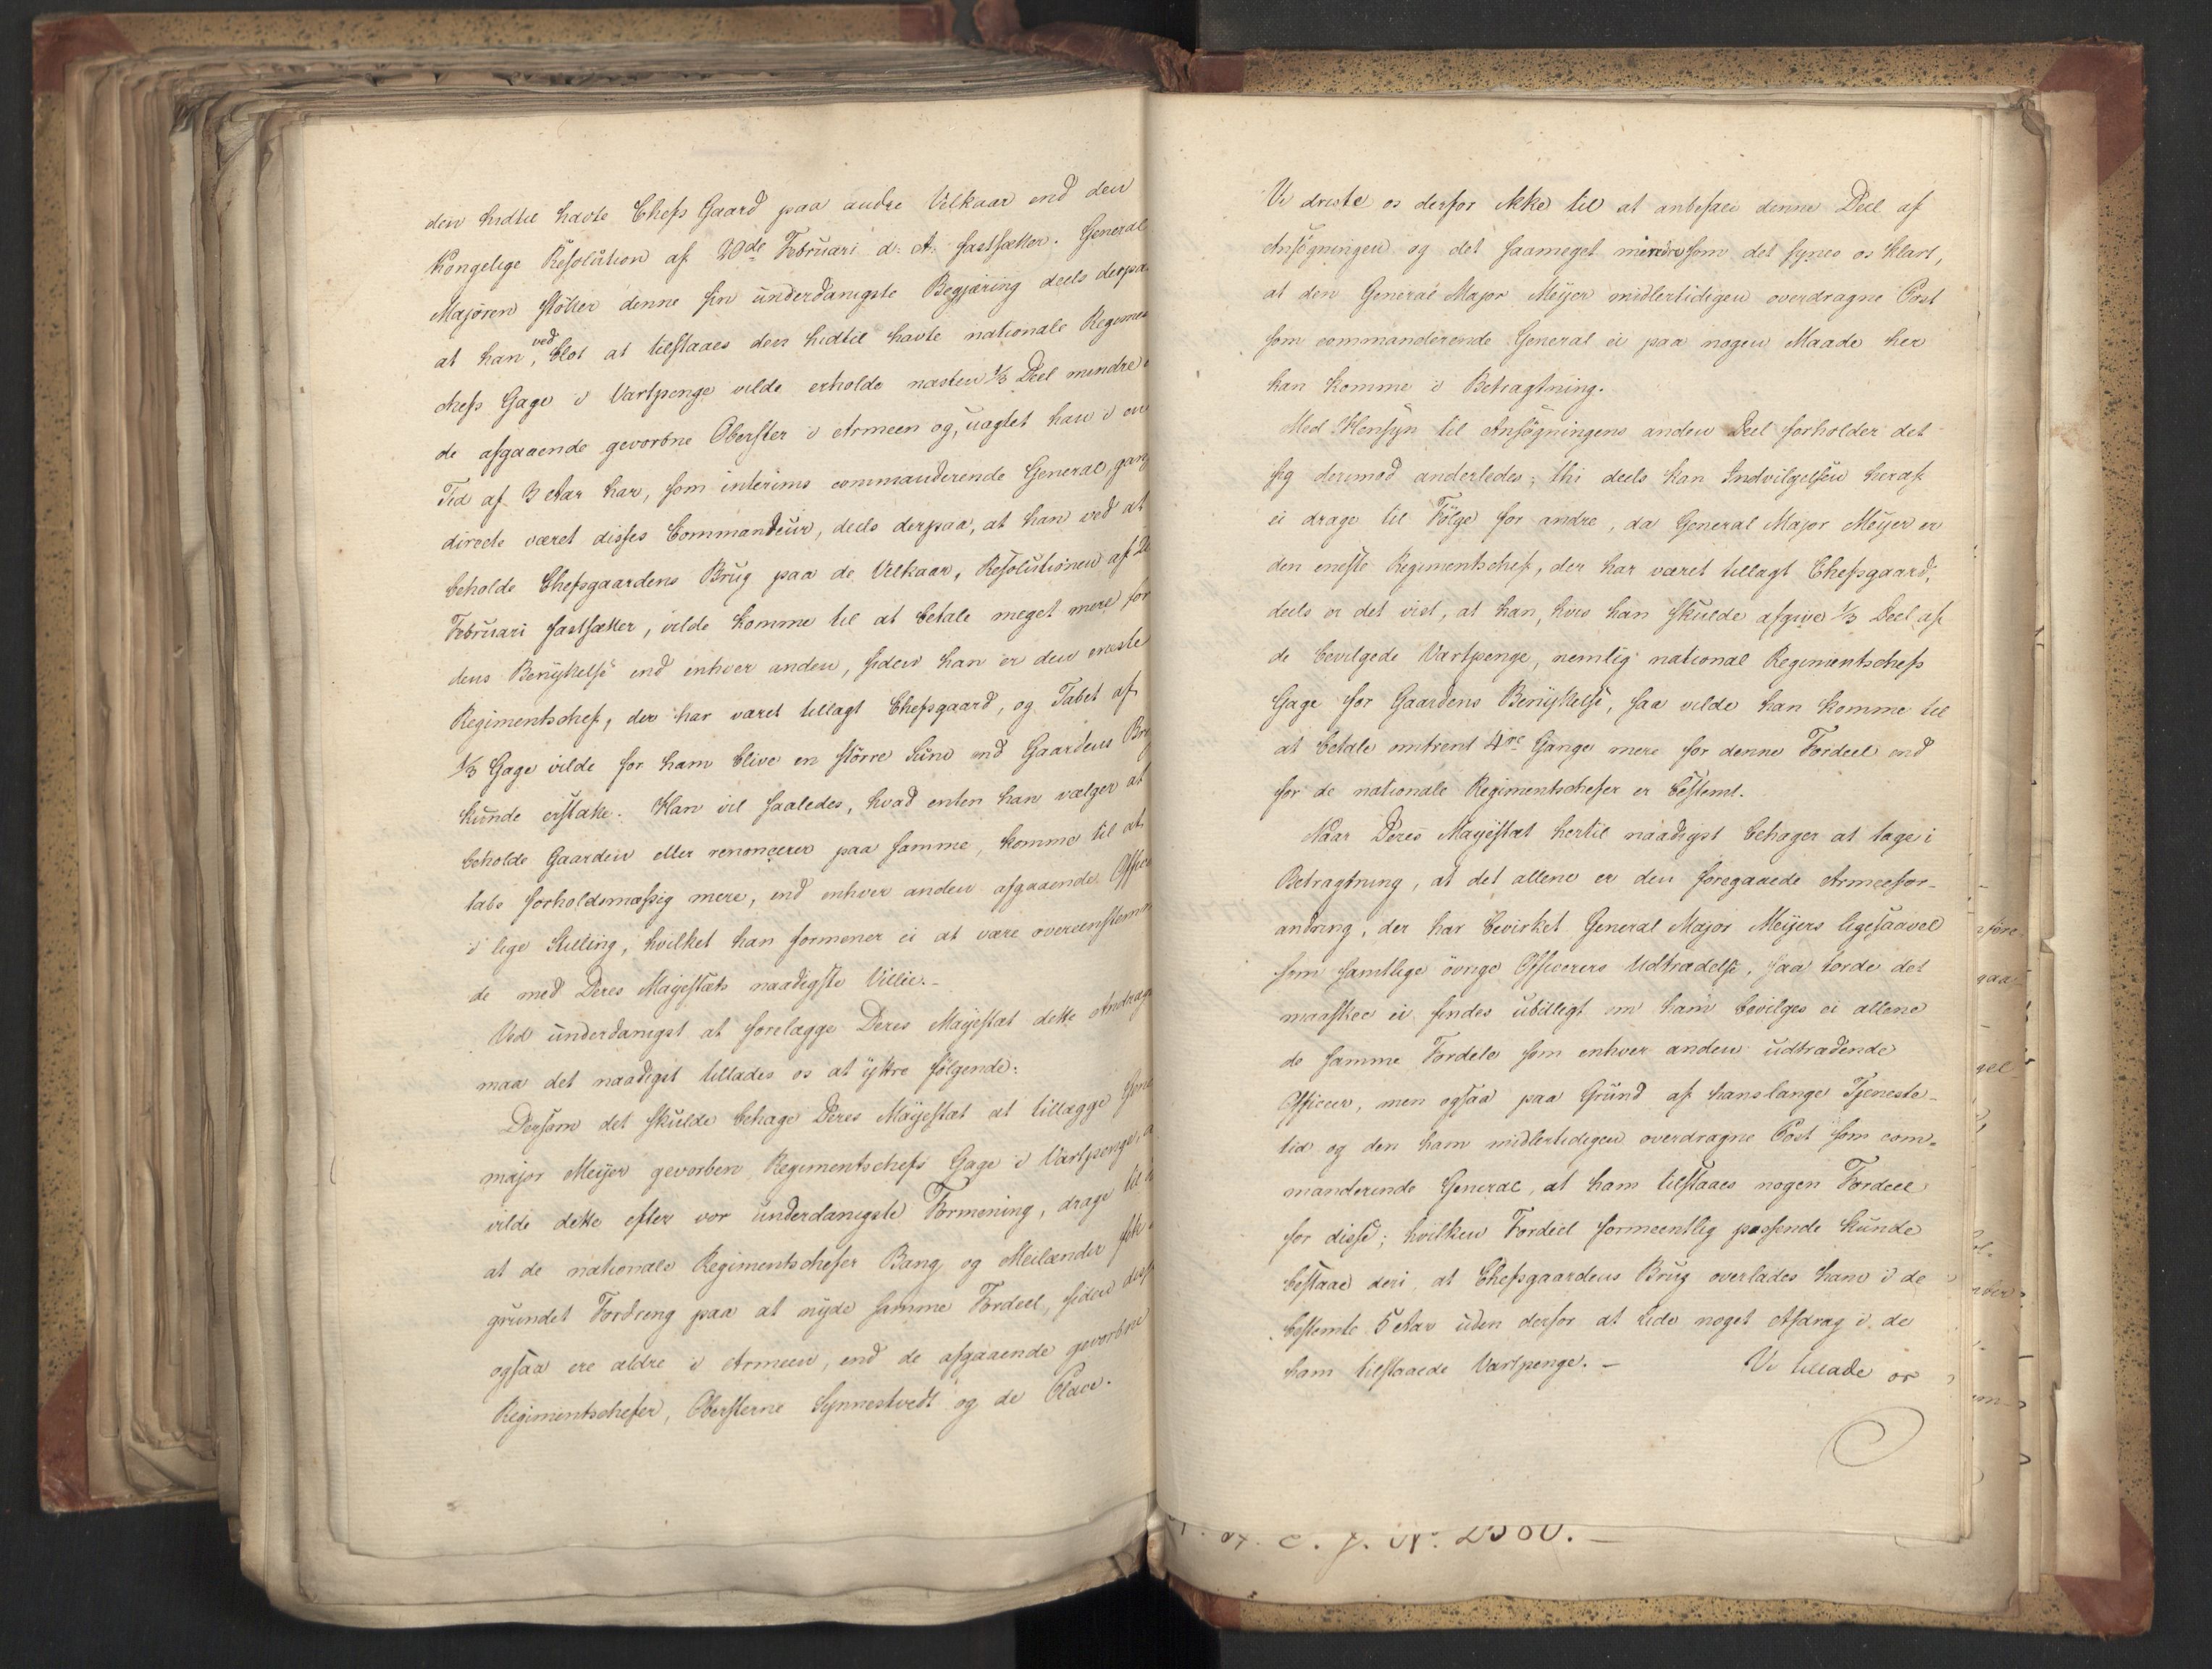 den hidtil havte Chefs Gaard paa andre Vilkaar end den
Kongelige Resolution af 20de Februari d: A: fastsætter. General
Majoren støtter denne sin underdanigste Begjæring deels derpaa
at han, ved blot at tilstaaes den hidtil havte nationale Regime
chefs Gage i Vartpenge vilde erholde næsten 1/3 Deel mindre
de afgaaende gevorbne Oberster i Armeen og, uagtet han i en
Tid af 3 Aar har, som interims commanderende General, gan
directe været disses Commandeur, deels derpaa, at han ved at
beholde Chefsgaardens Brug paa de Vilkaar, Resolutionen af 20
Februari fastsætter, vilde komme til at betale meget mere for
dens Benyttelse end enhver anden, siden han er den eneste
Regimentschef, der har været tillagt Chefsgaard, og Tabet af
1/3 Gage vilde for ham blive en større Sum end Gaardens Bru
kunde erstatte. Han vil saaledes, hvad enten han vælger at
beholde Gaarden eller renoncerer paa samme, komme til at
tabe forholdsmæssig mere, end enhver anden afgaaende Offic
i lige Stilling, hvilket han formener ei at være overeenstemm
de med Deres Majestæts naadigste Villie. -
Ved underdanigst at forelægge Deres Mayestæt dette Andrag
maa det naadigst tillades os at yttre følgende:
Dersom det skulde behage Deres Mayestæt at tillægge Gene
major Meijer gevorben Regimentschefs Gage i Vartpenge,
vilde dette efter vor underdanigste Formening, drage til
at de nationale Regimentschefer Bang og Meilænder fik
grundet Fordring paa at nyde samme Fordeel, siden diss
ogsaa ere ældre i Armeen, end de afgaaende gevorbne
Regimentschefer, Obersterne Synnestvedt og de Clave.
Vi driste os derfor ikke til at anbefale denne Deel af
Ansøgningen og det saameget mindre som det synes os klart,
at den General Major Meijer midlertidigen overdragne Post
som commanderende General ei paa nogen Maade her
kan komme i Betragtning.
Med Hensyn til Ansøgningens anden Deel forholder det
sig derimod anderledes; thi deels kan Indvilgelsen heraf
ei drage til Følge for andre, da General Major Meijer er
den eneste Regimentschef, der har været tillagt Chefsgaard;
deels er det vist, at han, hvis han skulde afgive 1/3 Deel af
de bevilgede Vartpenge, nemlig national Regimentschefs
Gage for Gaardens Benyttelse, saa vilde han komme til
at betale omtrent 4re Gange mere for denne Fordeel end
for de nationale Regimentschefer er bestemt.
Naar Deres Mayestæt hertil naadigst behager at tage i
Betragtning, at det allene er den foregaaede Armeefor-
andring, der har bevirket General Major Meijers ligesaavel
som samtlige øvrige Officerers Udtrædelse, saa torde det
maaskee ei findes ubilligt om ham bevilges ei allene
de samme Fordele som enhver anden udtrædende
Officeer, men ogsaa paa Grund af hans lange Tjeneste-
tid og den ham midlertidigen overdragne Post som com-
manderende General, at ham tilstaaes nogen Fordeel
for disse; hvilken Fordeel formeentlig passende kunde
bestaae deri at Chefsgaardens Brug overlades ham i de
bestemte 5 Aar uden derfor at lide noget Afdrag i de
ham tilstaaede Vartpenge. - Vi tillade os
C. J. N: 2380. -